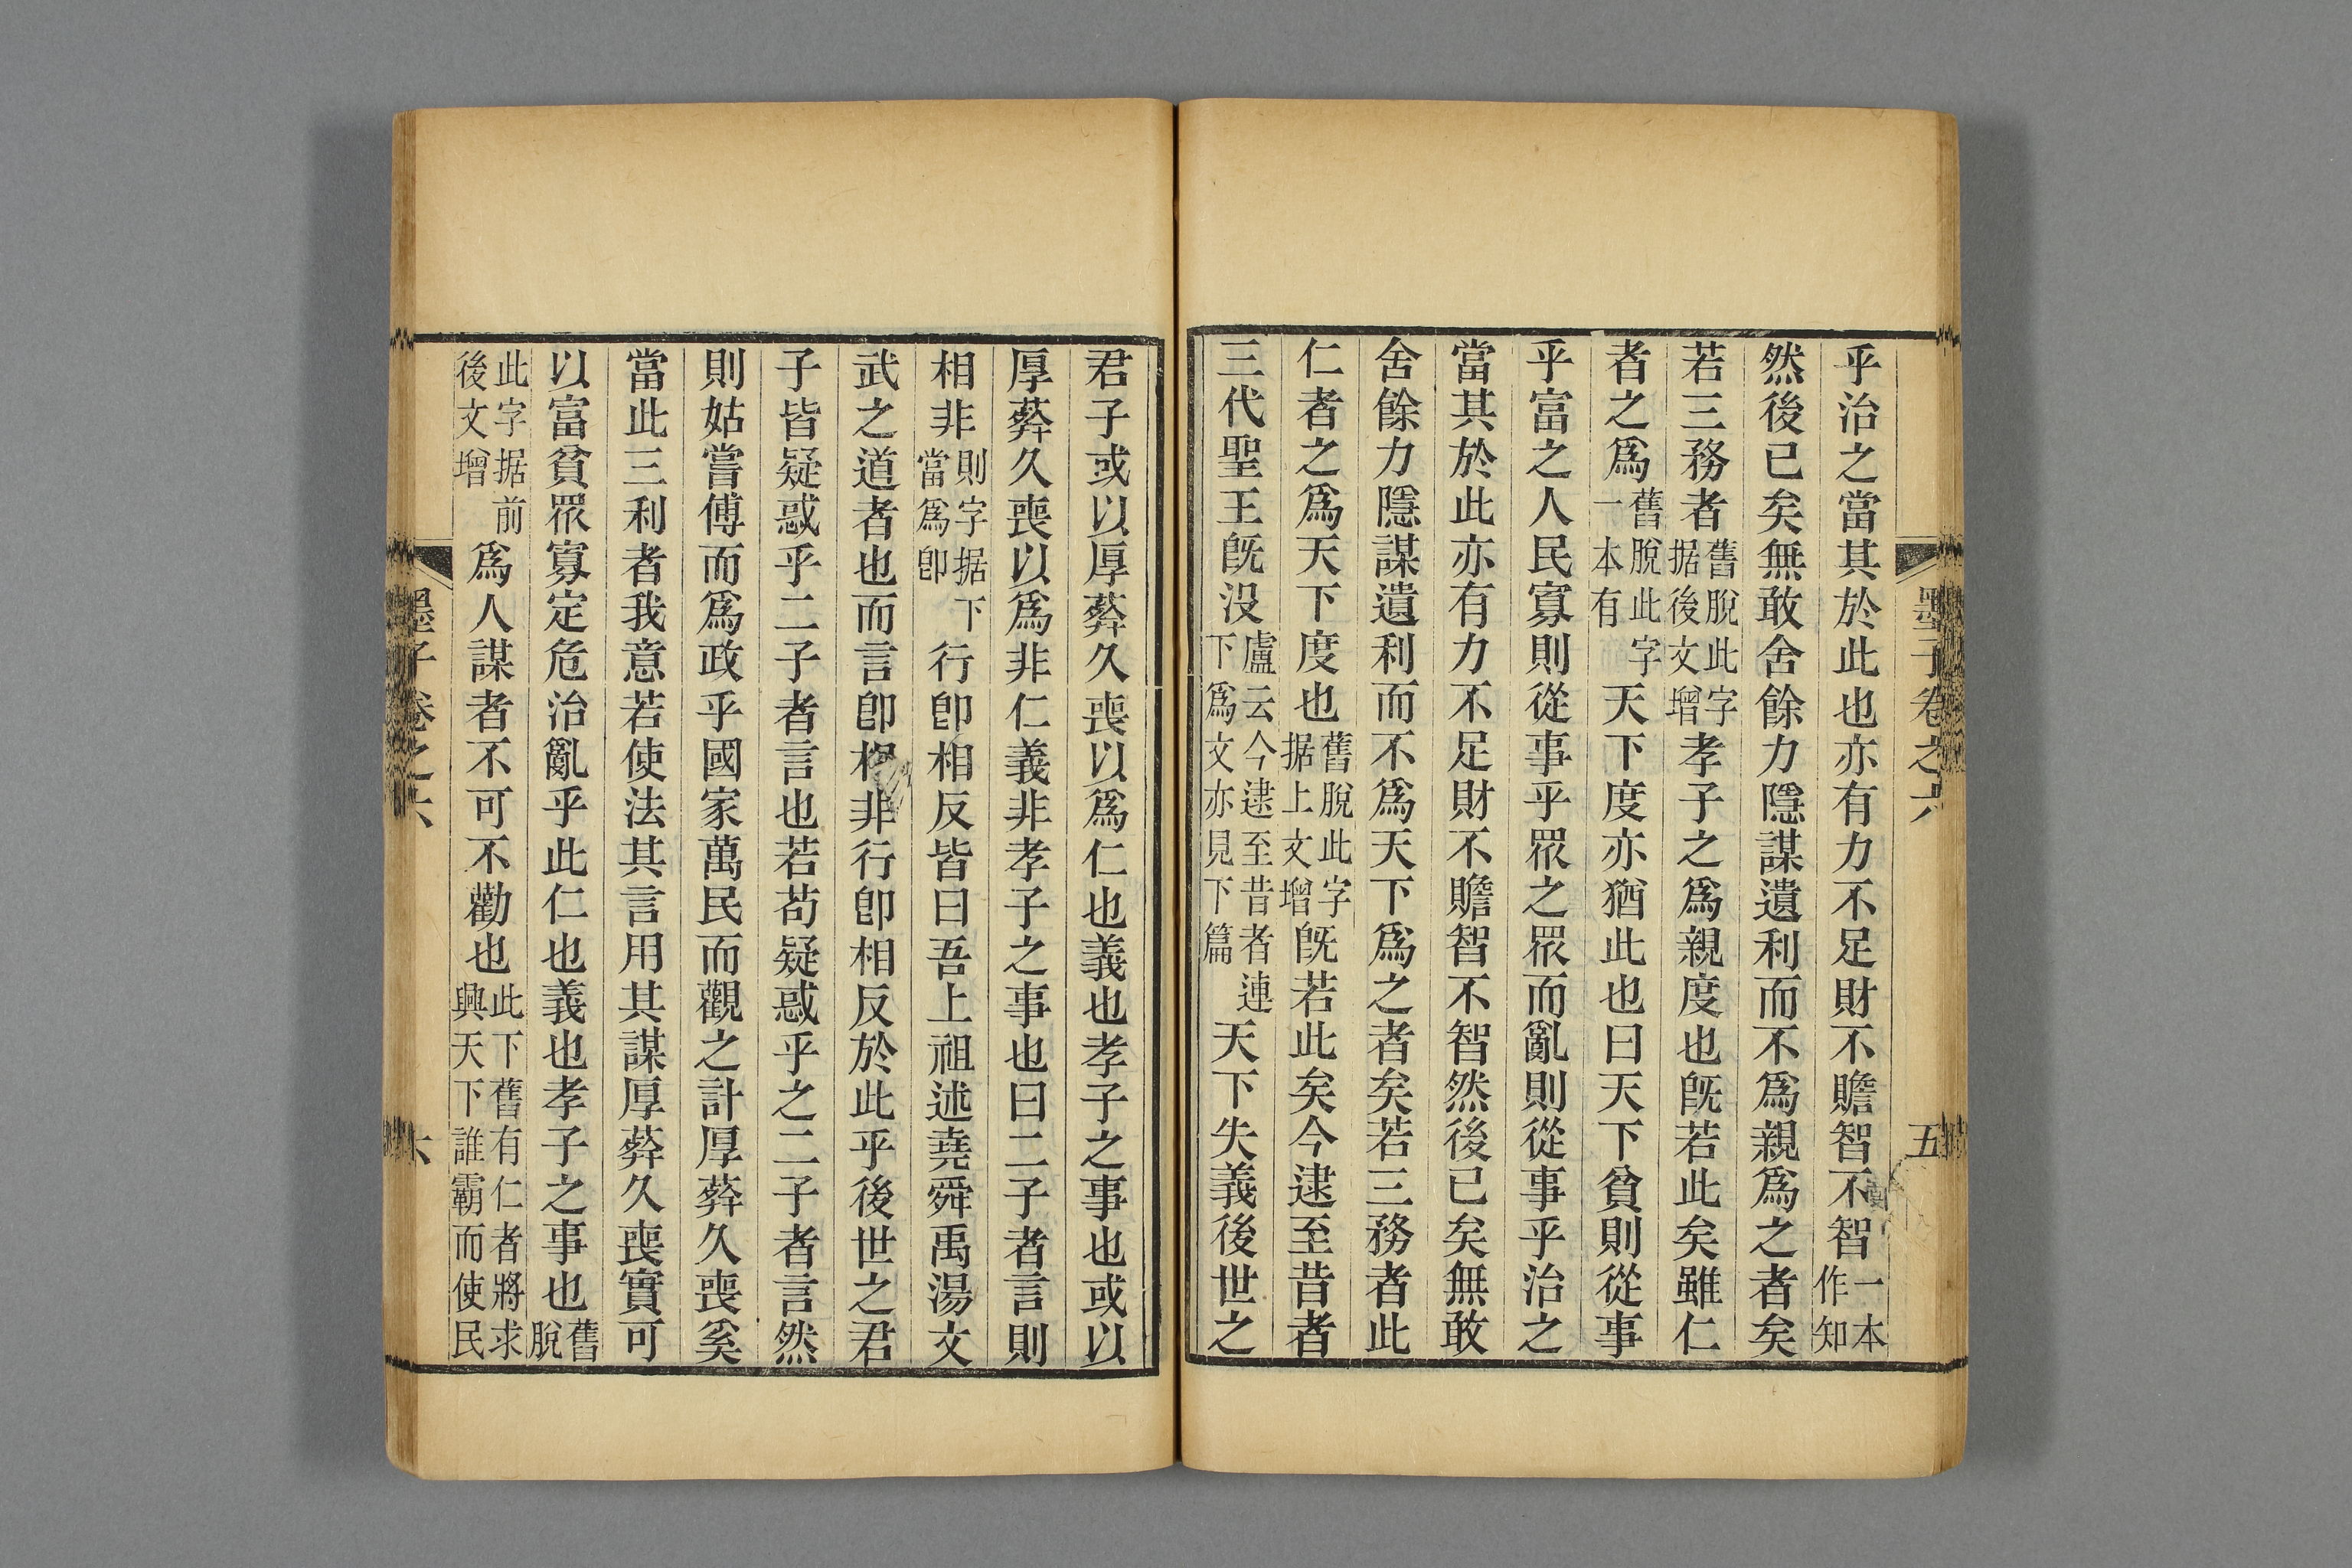 墨子卷之六 五
乎治之當其於此也亦有力不足財不贍智不智一本作知
然後已矣無敢舍餘力隱謀遺利而不爲親爲之者矣
若三務者舊脫此字据後文增孝子之爲親度也旣若此矣雖仁
者之爲舊脫此字一本有天下度亦猶此也曰天下貧則從事
乎富之人民寡則從事乎眾之眾而亂則從事乎治之
當其於此亦有力不足財不贍智不智然後已矣無敢
舍餘力隱謀遺利而不爲天下爲之者矣若三務者此
仁者之爲天下度也舊脫此字据上文增旣若此矣今逮至昔者
三代聖王旣没盧云今逮至昔者連下爲文亦見下篇天下失義後世之
君子或以厚葬久喪以爲仁也義也孝子之事也或以
厚葬久喪以爲非仁義非孝子之事也曰二子者言則
相非則字据下當爲卽行卽相反皆曰吾上祖述堯舜禹湯文
武之道者也而言卽相非行卽相反於此乎後世之君
子皆疑惑乎二子者言也若苟疑惑乎之二子者言然
則姑嘗傅而爲政乎國家萬民而觀之計厚葬久喪奚
當此三利者我意若使法其言用其謀厚葬久喪實可
以富貧眾寡定危治亂乎此仁也義也孝子之事也舊脫
此字据前後文增爲人謀者不可不勸也此下舊有仁者將求興天下誰霸而使民
墨子卷之六 六